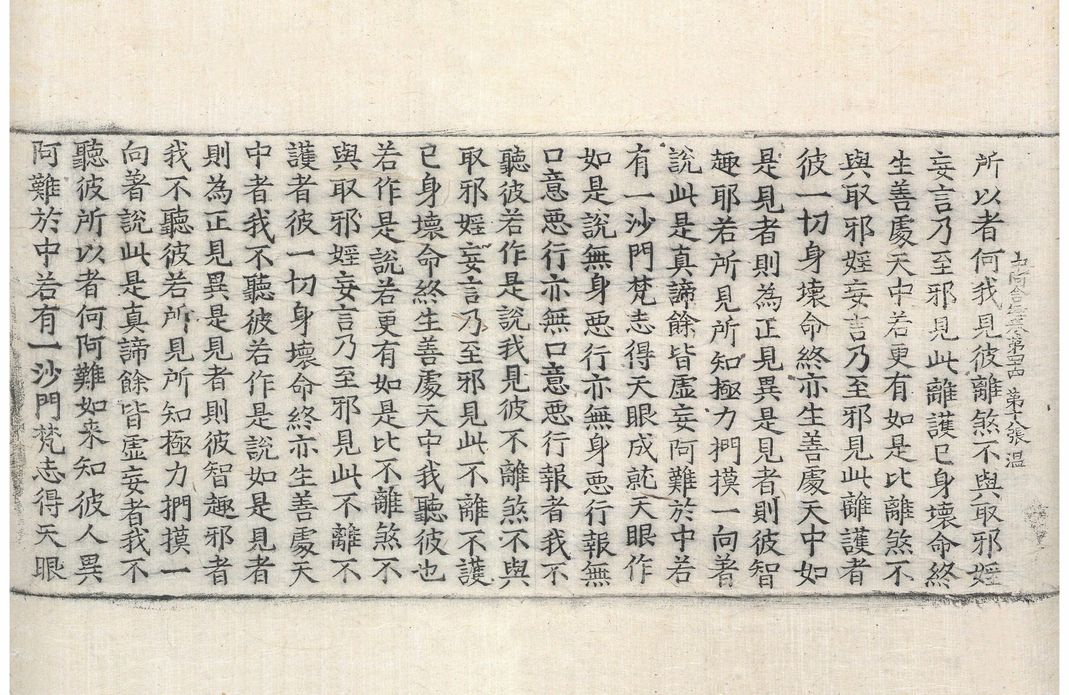 中阿含經卷第 第 張 温
所以者何我見彼離煞不與取邪婬
妄言乃至邪見此離護已身壞命終
生善處天中若更有如是比離煞不
與取邪婬妄言乃至邪見此離護者
彼一切身壞命終亦生善處天中如
是見者則為正見異是見者則彼智
趣耶若所見所知極力捫摸一向著
說此是真諦餘皆虛妄阿難於中若
有一沙門梵志得天眼成就天眼作
如是說無身惡行亦無身惡行報無
口意惡行亦無口意惡行報者我不
聽彼若作是說我見彼不離煞不與
取邪婬妄言乃至邪見此不離不護
已身壞命終生善處天中我聽彼也
若作是說若更有如是比不離煞不
與取邪婬妄言乃至邪見此不離不
護者彼一切身壞命終亦生善處天
中者我不聽彼若作是說如是見者
則為正見異是見者則彼智趣邪者
我不聽彼若所見所知極力捫摸一
向著說此是真諦餘皆虛妄者我不
聽彼所以者何阿難如来知彼人異
阿難於中若有一沙門梵志得天眼